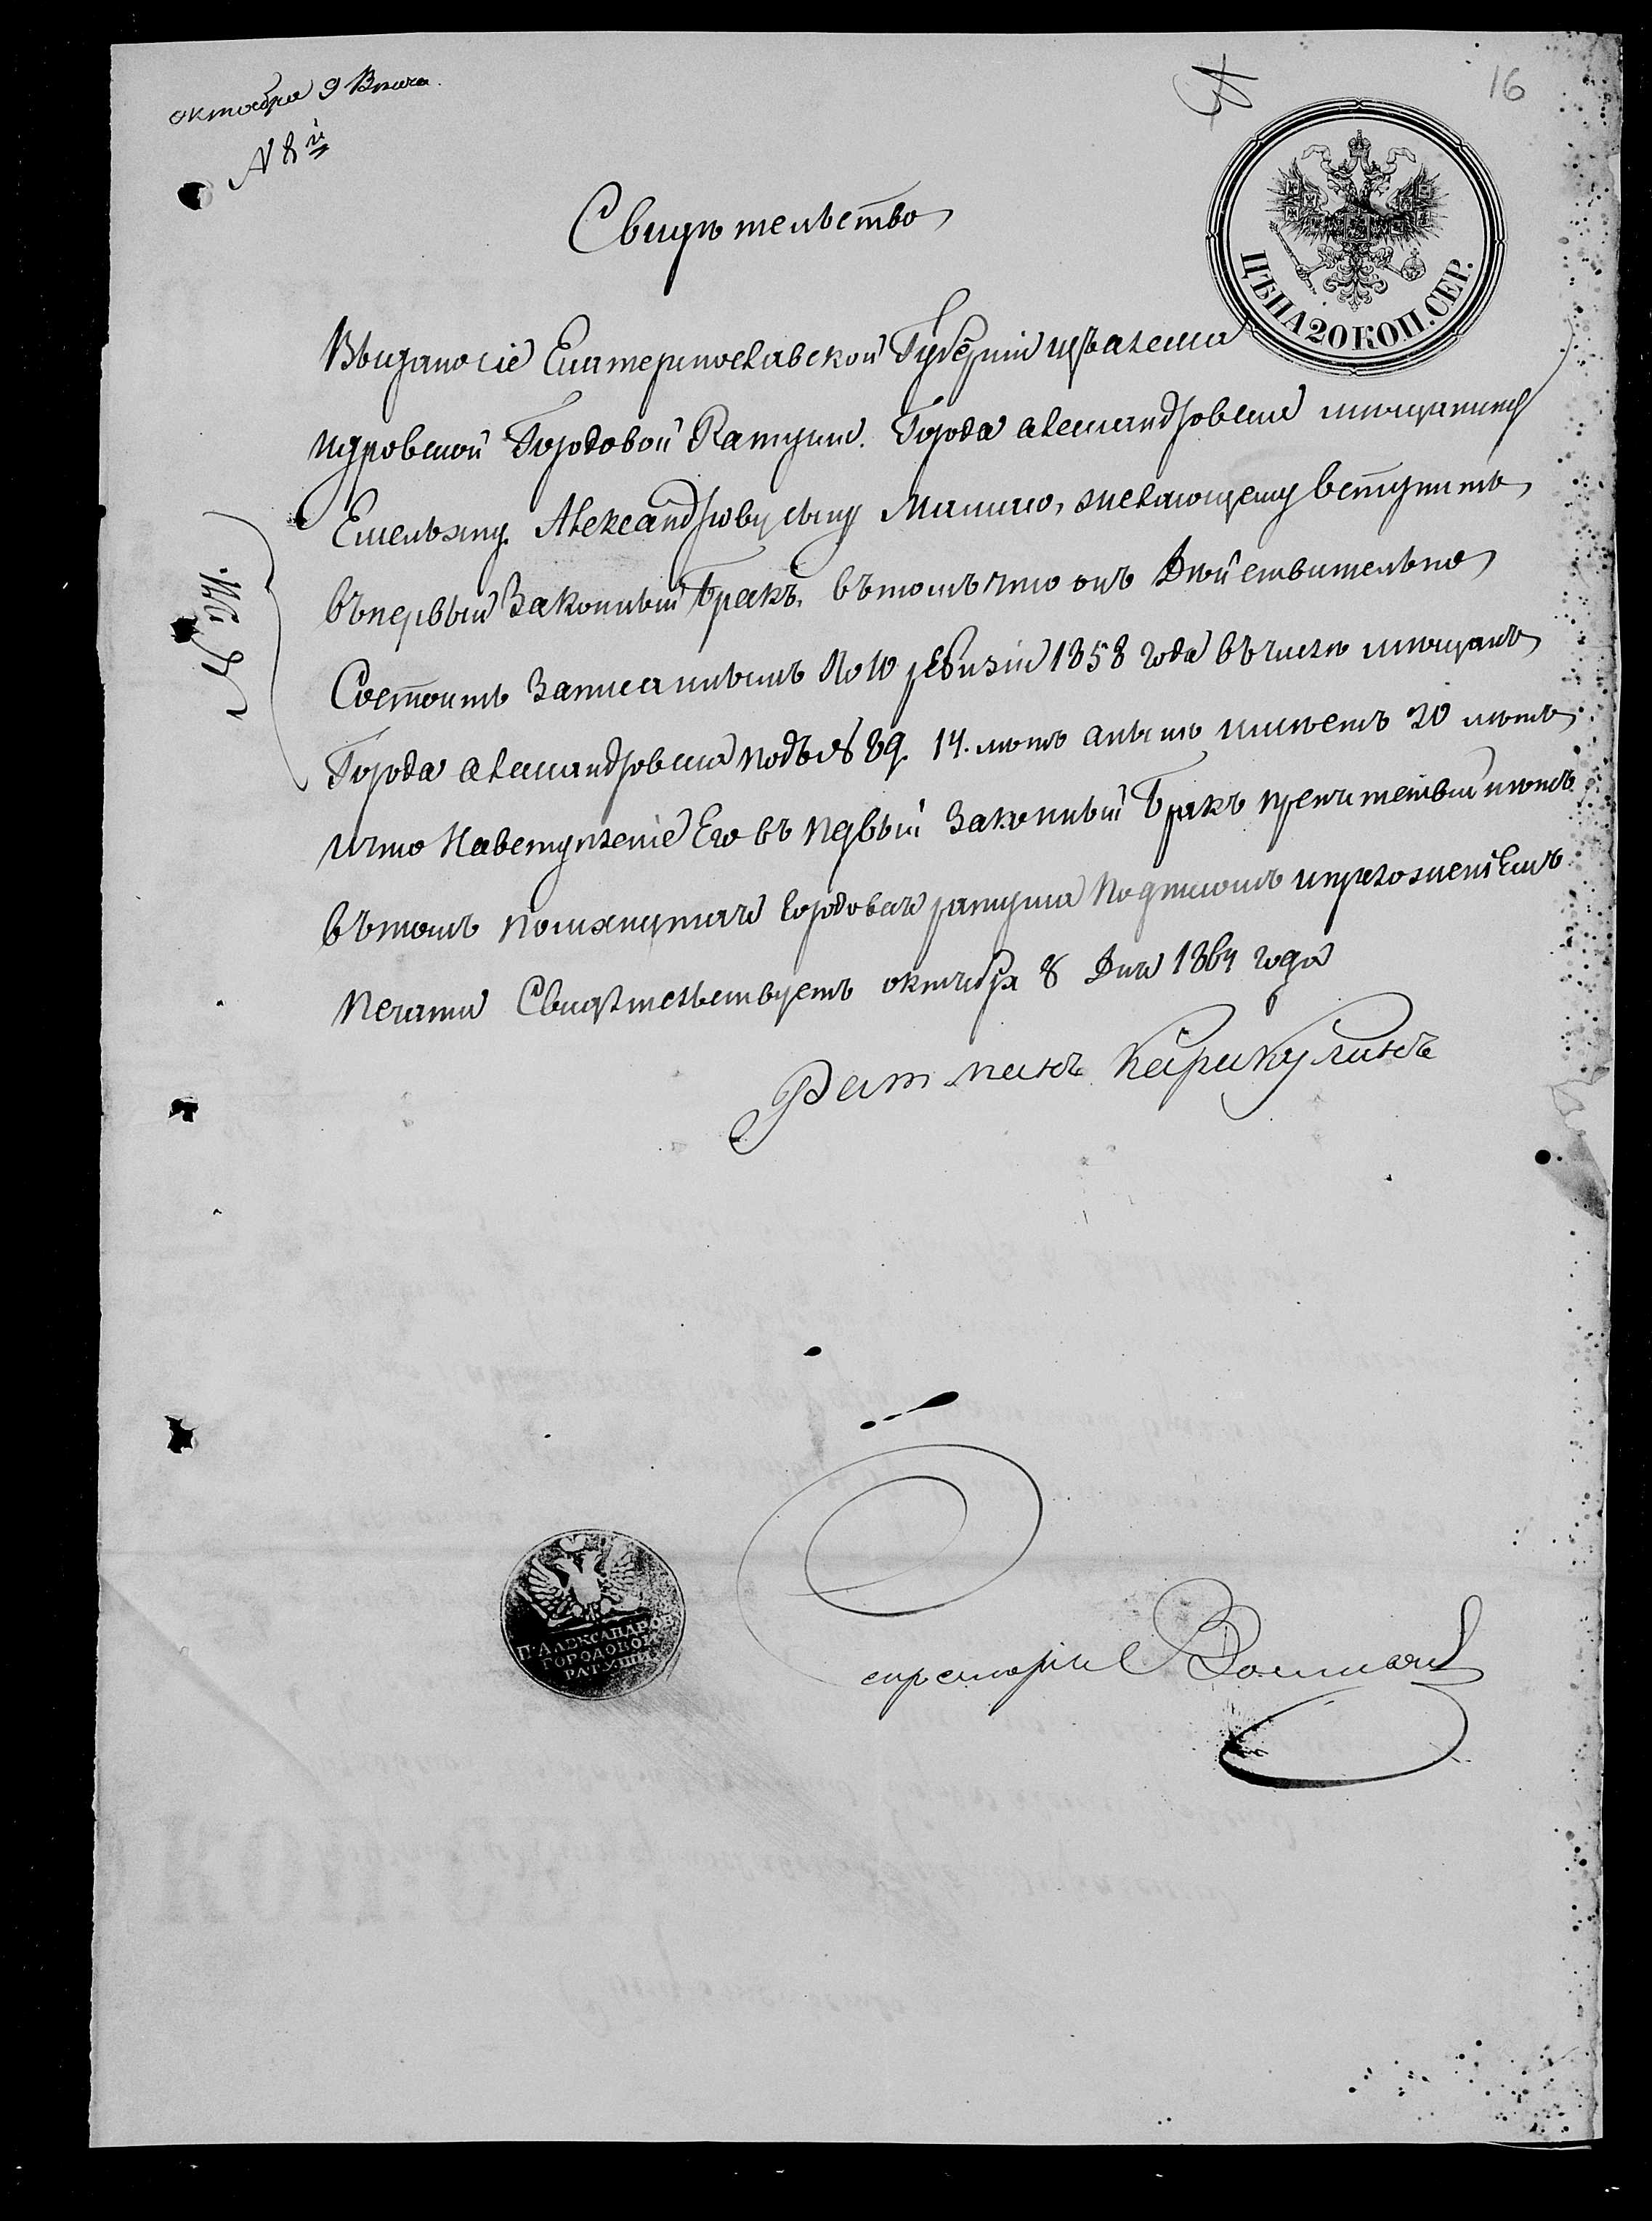 октября 9 Вѣнча.
№ 8й
16
ЦѢНА 20 КОП. СЕР.
Свидѣтельство
Выдано сіе Екатеринославской Губерніи изъ алекса
ндровской Городовой Ратуши. Города александровска мѣщанину
Емельяну Александрову сыну желающему вступить
въ первый Законный бракъ, въ томъ что онъ Дѣйствительно
Состоитъ Записаннымъ По 10 ревизіи 1858 года въ числѣ мѣщанъ
Города александровска подъ № 89. 14. лѣтъ а нынѣ имѣетъ 20 лѣтъ
и что На вступленіе Его въ первый Законный бракъ препятствій нѣтъ
въ томъ помянутая городовая ратуша Подписомъ и приложеніемъ
Печати Свидѣтельствуетъ октября 8 Дня 1864 года
Ратманъ Каракулинъ
П. АЛЕКСАНДРОВ:
ГОРОДОВОЙ
РАТУШИ